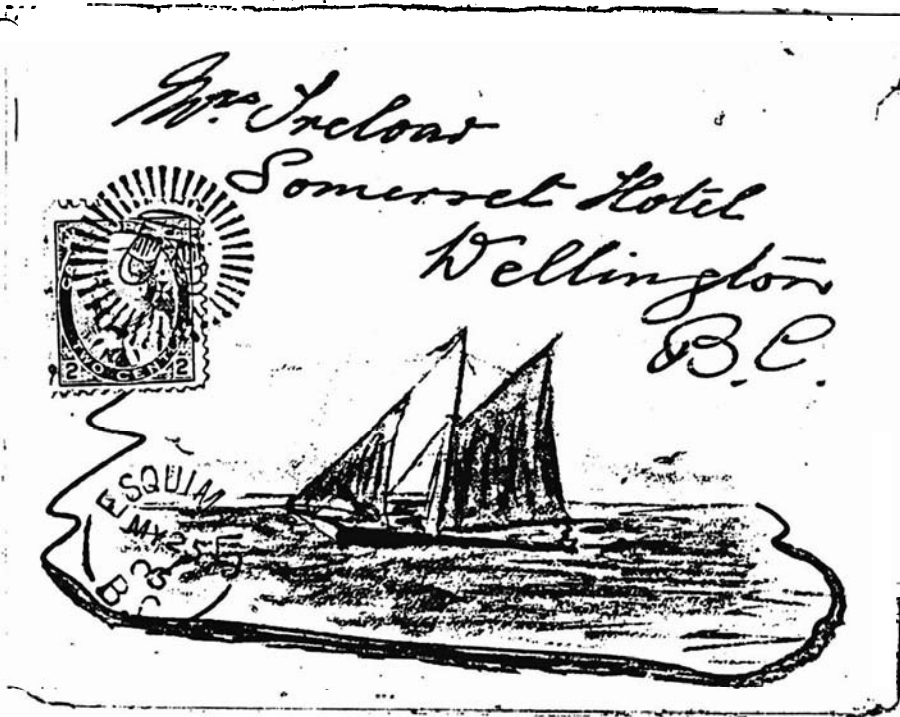 Mrs Ireland
Somerset Hotel
Wellington
B.C.
2 TWO CENTS 2
ESQUIM
MY 25
B.C